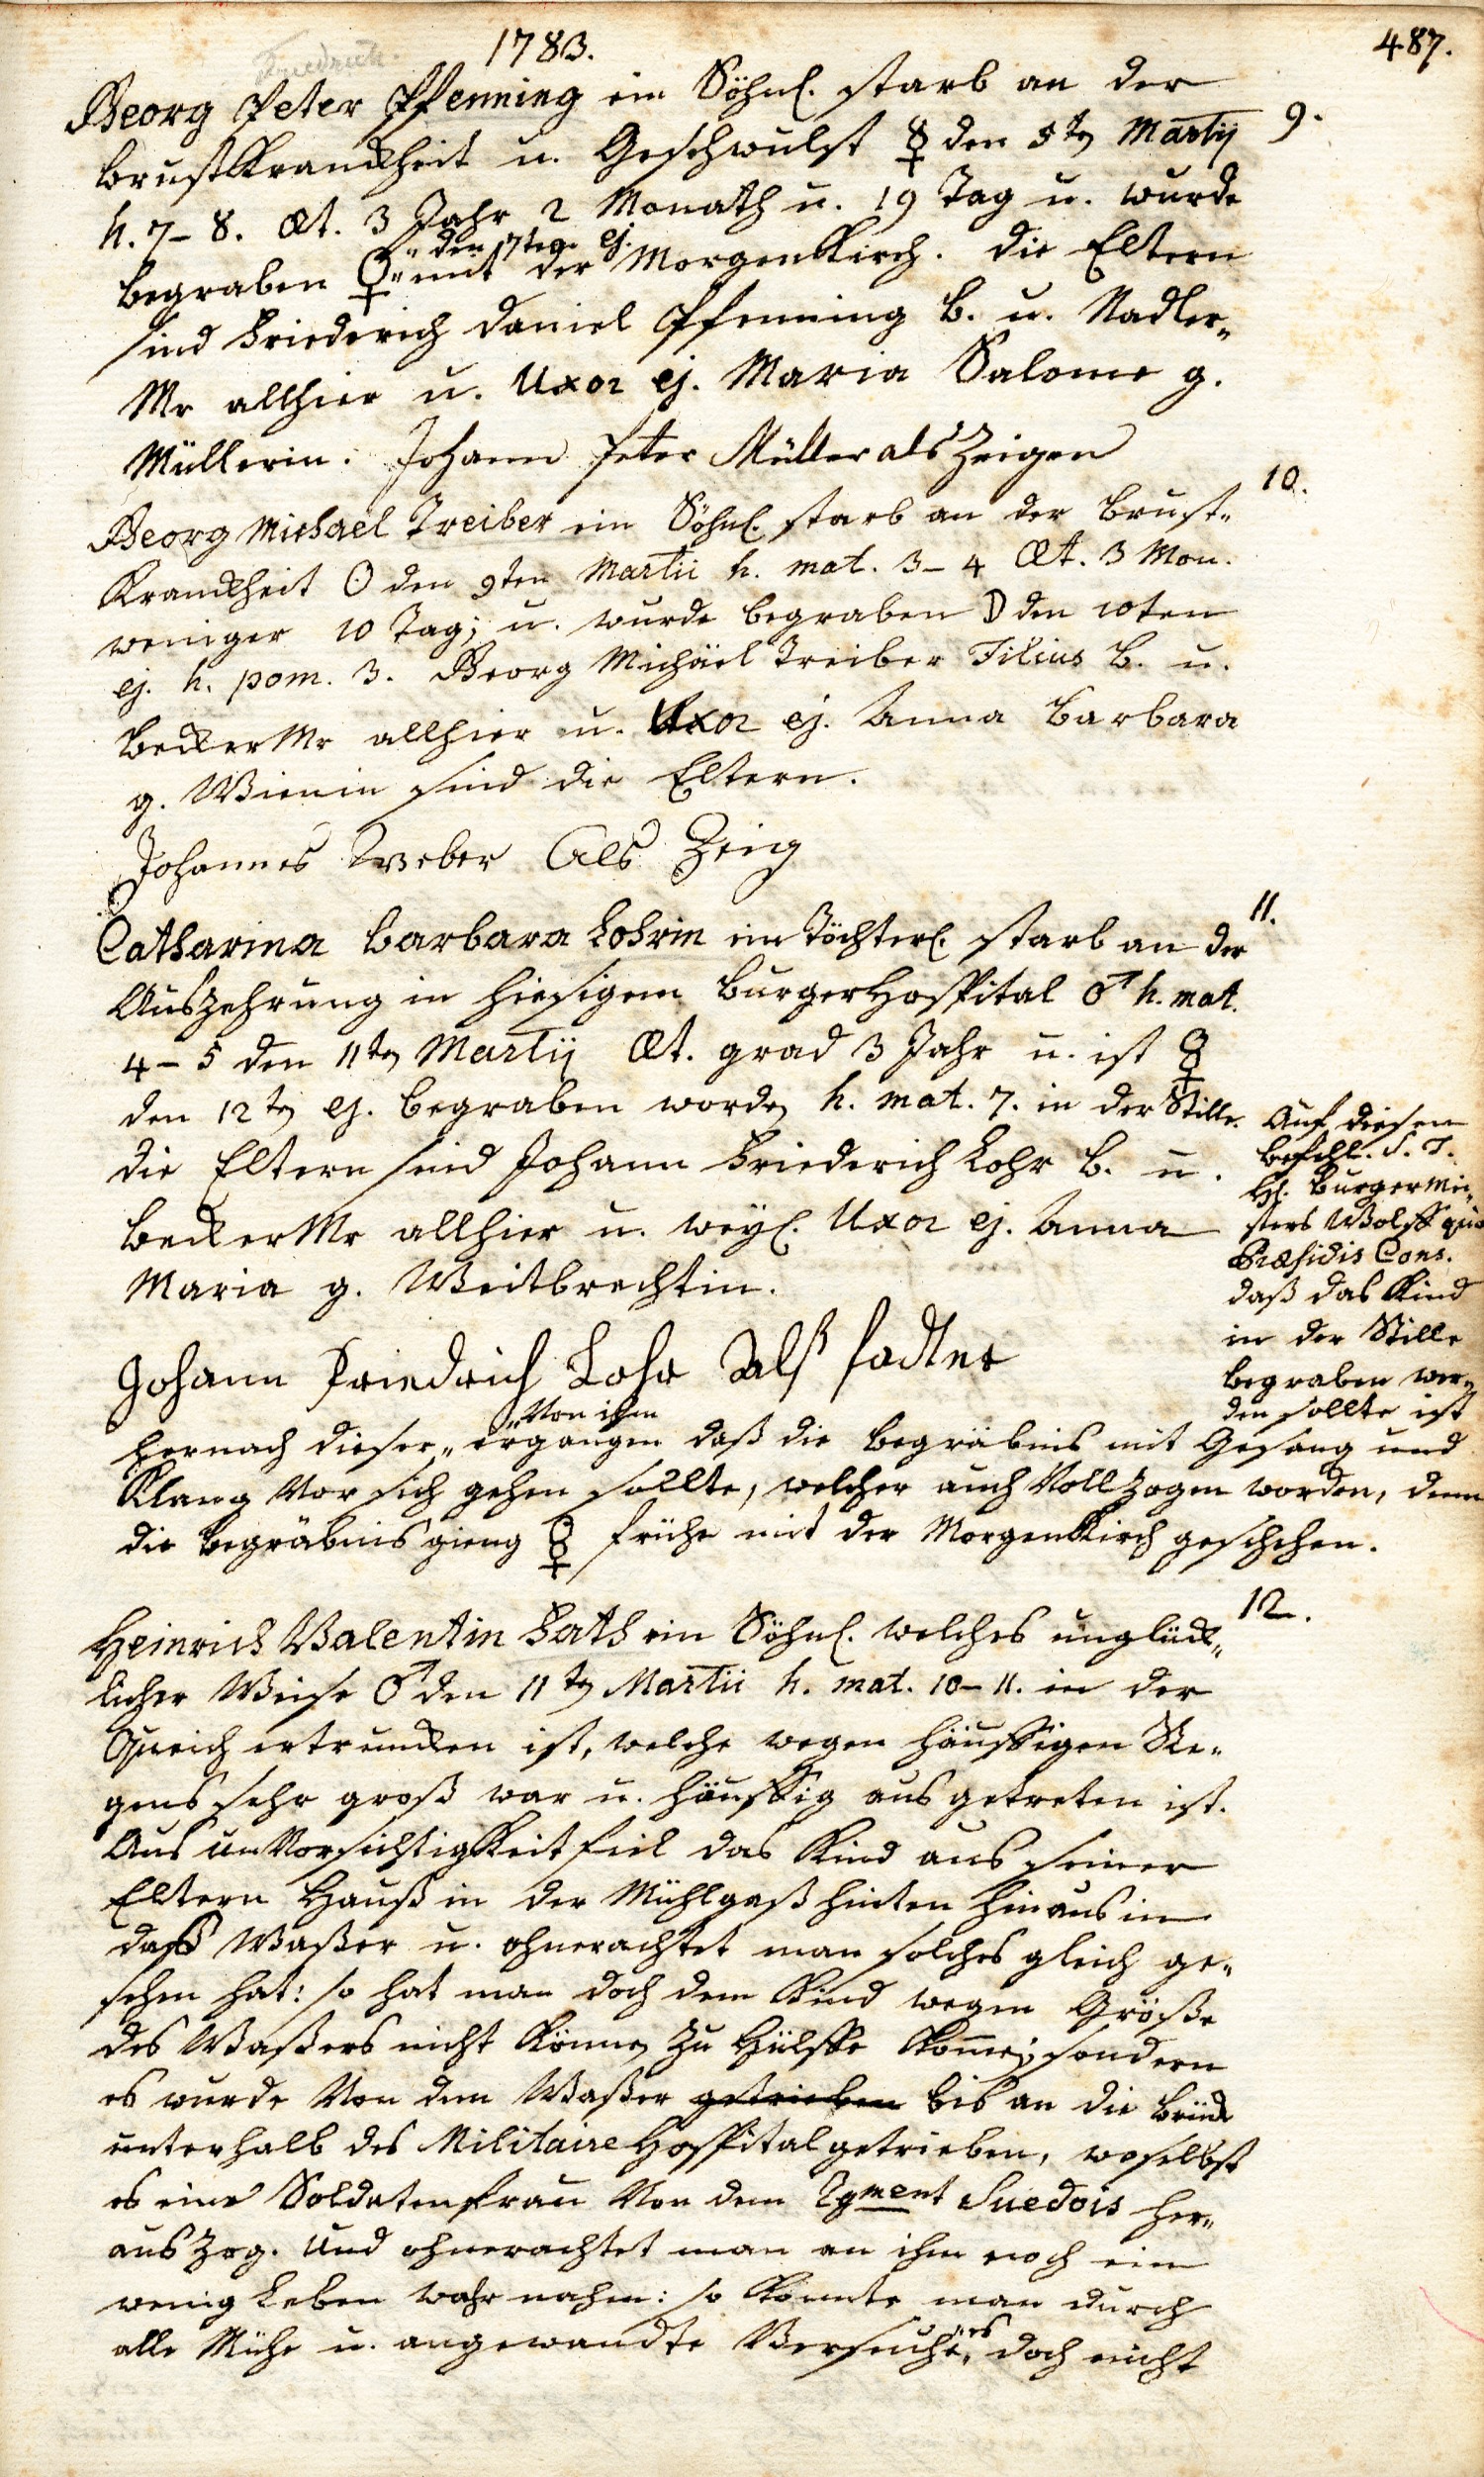 1783.
487.
Friedrich.
Georg Peter Pfenning ein Söhnl. starb an der
9.
Brustkranckheit u. Geschwulst ☿ den 5ten Martij
h. 7–8. Æt. 3 Jahr 2 Monath u. 19 Tag u. wurde
„den 7ten ej.
begraben ♀ „mit der Morgenkirch. Die Eltern
sind Friederich Daniel Pfenning B. u. Nadler„
Mr allhier u. Uxor ej. Maria Salome g.
Müllerin. Johann Peter Müller als Zeigen
10.
Georg Michael Treiber ein Söhnl. starb an der Brust„
Kranckheit ☉ den 9ten Martii h. mat. 3–4 Æt. 3 Mon.
weniger 10 Tag; u. wurde begraben ☽ den 10ten
ej. h. pom. 3. Georg Michäel Treiber Filius B. u.
Becker Mr allhier u. Uxor ej. Anna Barbara
g. Wienin sind die Eltern.
Johannes Weber Als Zeig
11.
Catharina Barbara Lohrin ein Töchterl. starb an der
Auszehrung in hiesigem Burger Hospital ♂ h. mat.
4–5 den 11ten Martij Æt. grad 3 Jahr u. ist ☿
den 12ten ej. begraben worden h. mat. 7. in der Stille.
die Eltern sind Johann Friederich Lohr B. u.
Becker Mr allhier u. weyl. Uxor ej. Anna
Maria g. Weitbrechtin.
Johann Friedrich Lohr Alß fadter
Auf diesen
Befehl. S. T.
H. Burgermei„
sters Wolff qua
Præsidis Cons.
daß das Kind
in der Stille
begraben wer„
den sollte ist
„Von ihm
hernach dieser „ergangen daß die Begräbnis mit Gesang und
Klang Vor sich gehen sollte, welcher auch Vollzogen worden, denn
die Begräbnis gieng ☿ frühe mit der Morgenkirch geschehen.
12.
Heinrich Valentin Hath ein Söhnl. welches unglück„
licher Weise ♂ den 11ten Martii h. mat. 10–11. in der
Queich ertruncken ist, welche wegen häuffigen Re„
gens sehr groß war u. häuffig ausgetreten ist.
Aus unVorsichtigkeit fiel das Kind aus seiner
Eltern Hauß in der Mühlgaß hinten hinaus in
daß Waßer u. ohnerachtet man solches gleich ge„
sehen hat: so hat man doch dem Kind wegen Größe
des Waßers nicht können zu Hülffe kommen; sondern
es wurde Von dem Waßer getrieben bis an die Brück
unterhalb des Militaire Hospital getrieben, woselbst
es eine Soldatenfrau Von dem Rgment Suedois her„
aus zog. Und ohnerachtet man an ihm noch ein
wenig Leben wahr nahm: so konnte man durch
alle Mühe u. angewandte Versuche „es doch nicht